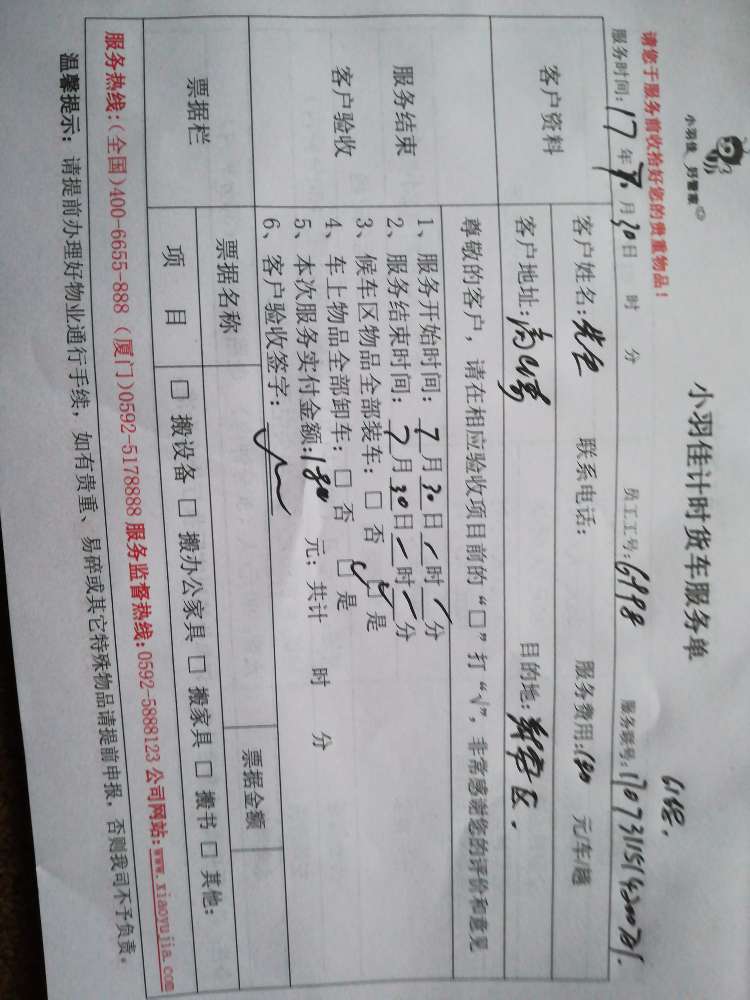 小羽佳 好管家
小羽佳计时货车服务单
请您于服务前收拾好您的贵重物品!
服务时间: 17 年 7 月 30 日 时 分 员工工号: 服务账号:
客户资料
客户姓名: 联系电话: 服务费用: 元/车/趟
客户地址: 目的地:
尊敬的客户，请在相应验收项目前的“□”打“√”，非常感谢您的评价和意见
服务结束
客户验收
1、服务开始时间: 7 月 30 日 时 分
2、服务结束时间: 7 月 30 日 时 分
3、候车区物品全部装车: □ 否 □ 是
4、车上物品全部卸车: □ 否 □ 是
5、本次服务实付金额: 元; 共计 时 分
6、客户验收签字:
票据栏
票据名称 票据金额
项 目 □ 搬设备 □ 搬办公家具 □ 搬家具 □ 搬书 □ 其他:
服务热线:(全国)400-6655-888 (厦门)0592-5178888 服务监督热线:0592-5888123 公司网站:www.xiaoyujia.com
温馨提示: 请提前办理好物业通行手续，如有贵重、易碎或其它特殊物品请提前申报，否则我司不予负责。